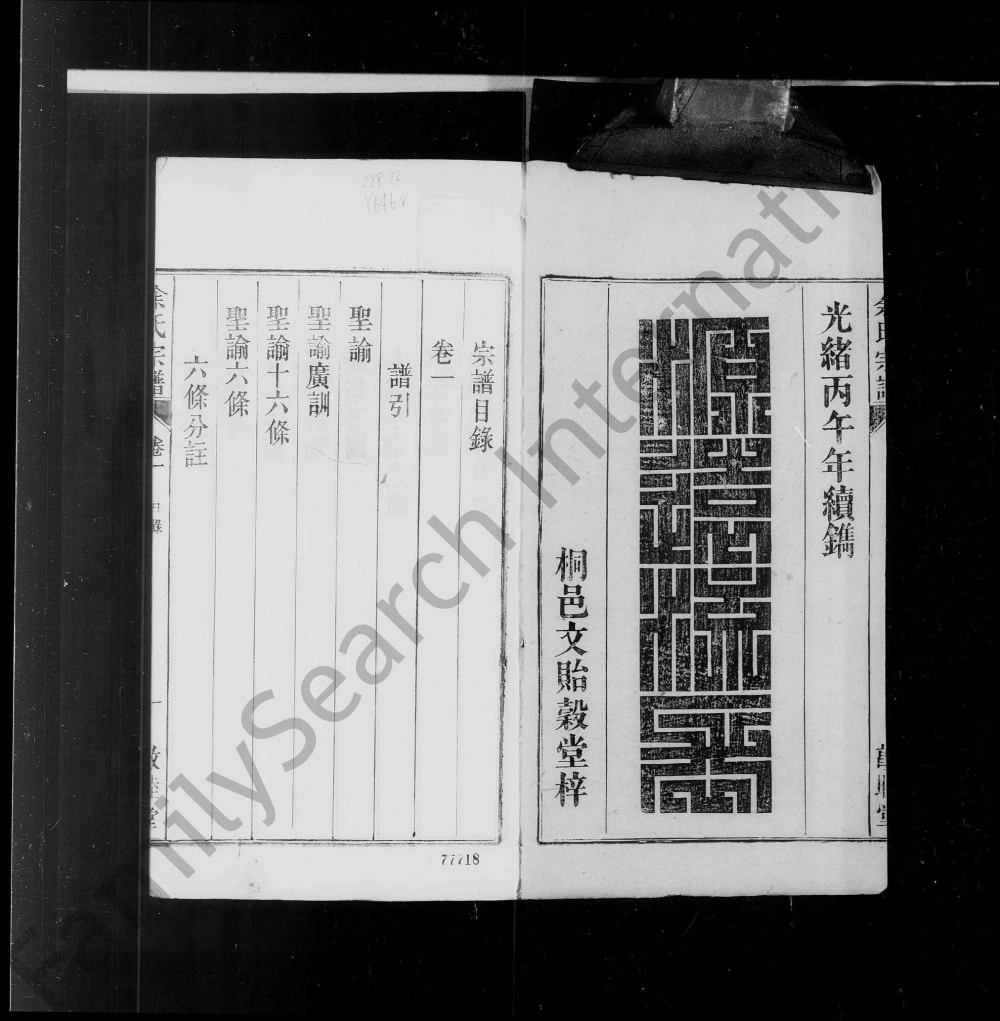 光緒丙午年續鐫
桐邑文貽穀堂梓
宗譜目錄
卷一
譜引
聖諭
聖諭廣訓
聖諭十六條
聖諭六條
六條分註
氏宗譜
卷一
目錄
一
敦睦堂
77718
FamilySearch International